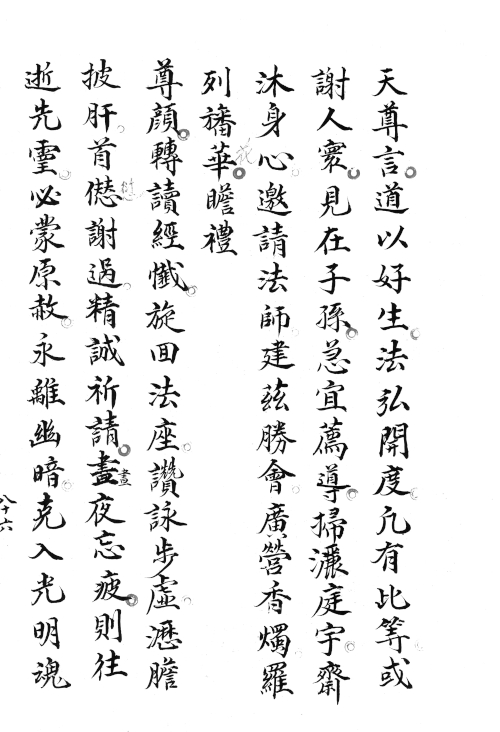 天尊言道以好生法弘開度凡有比等或
謝人寰見在子孫急宜薦導掃灑庭宇齋
沐身心邀請法師建茲勝會廣營香燭羅
列旛華瞻禮
花
尊顏轉讀經懺旋回法座讚詠步虛瀝膽
披肝首愆謝過精誠祈請晝夜忘疲則往
愆
晝
逝先靈必蒙原赦永離幽暗克入光明魂
八十六